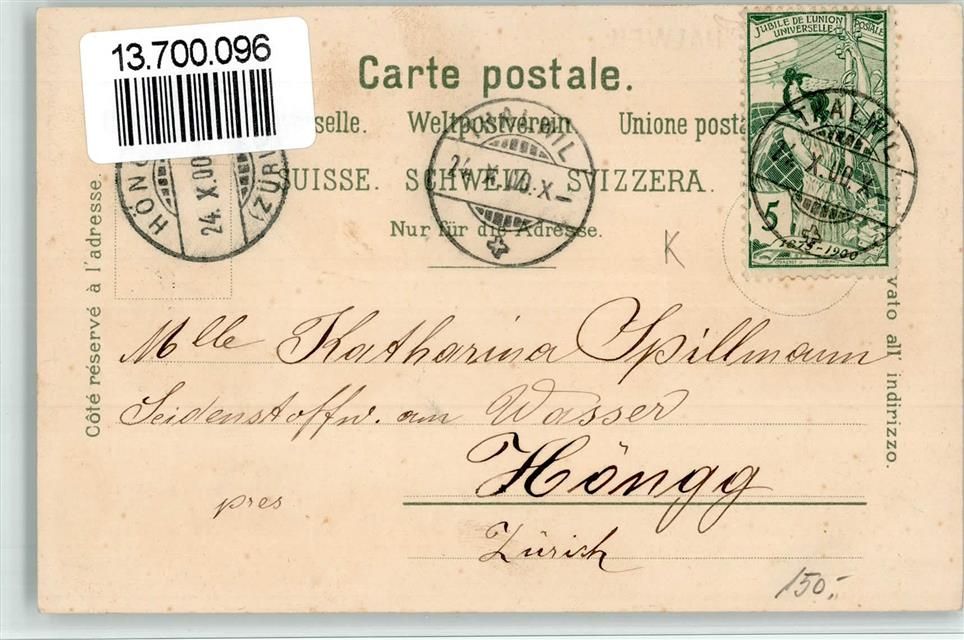 13.700.096
JUBILÉ DE L'UNION POSTALE
UNIVERSELLE
Carte postale.
selle. Weltpostverein Unione posta
SUISSE. SCHWEIZ. SVIZZERA.
Nur für die Adresse.
HÖNG
24.X.00
(ZÜRI
THALWIL
24.X.00.X-
THALWIL
X.00.X
5
1875-1900
K
Côté réservé à l'adresse.
vato all' indirizzo.
Mlle Katharina Spillmann
Seidenstoffw. am Wasser
Höngg
pres
Zürich
150.-